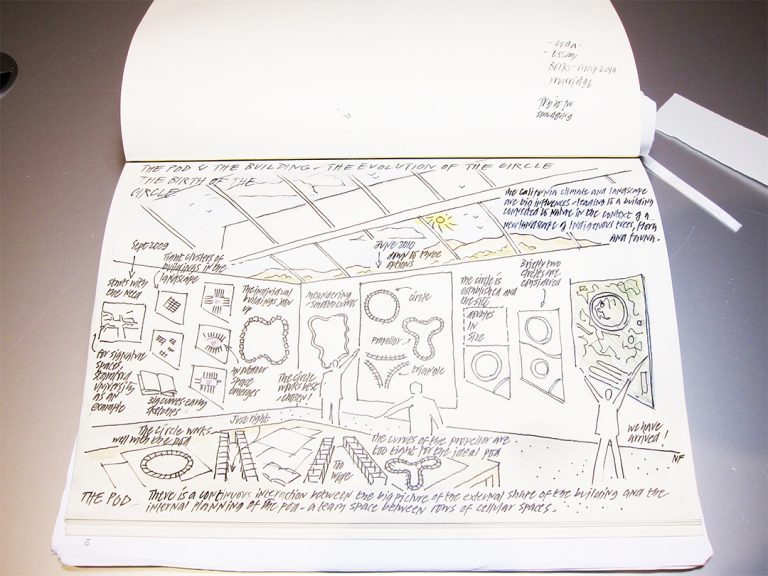 - ESSAY
THE POD & THE BUILDING - THE EVOLUTION OF THE CIRCLE
THE BIRTH OF THE
CIRCLE
The California climate and landscape
are big influences - leading to a building
connected to nature in the context of a
new landscape of indigenous trees, flora
and fauna.
Sept 2009
Tight clusters of
buildings in the
landscape
June 2010
down to three
options
Briefly two
circles are
considered
starts with
the need
The individual
buildings join
up
meandering
+ smaller curves
circle
propeller
triangle
The circle is
established and
the site
adjusts
IN
SIZE
for signature
spaces,
Stanford
University
as an
example
an outdoor
space
emerges
The circle
works best
- chosen!
big curves early
sketches
we have
arrived!
NF
Just right
The Circle works
well with the pod
too
wide
the curves of the propellor are
too tight for the ideal pod
THE POD - There is a continuous interaction between the big picture of the external shape of the building and the
internal planning of the pod - a team space between rows of cellular spaces.
10